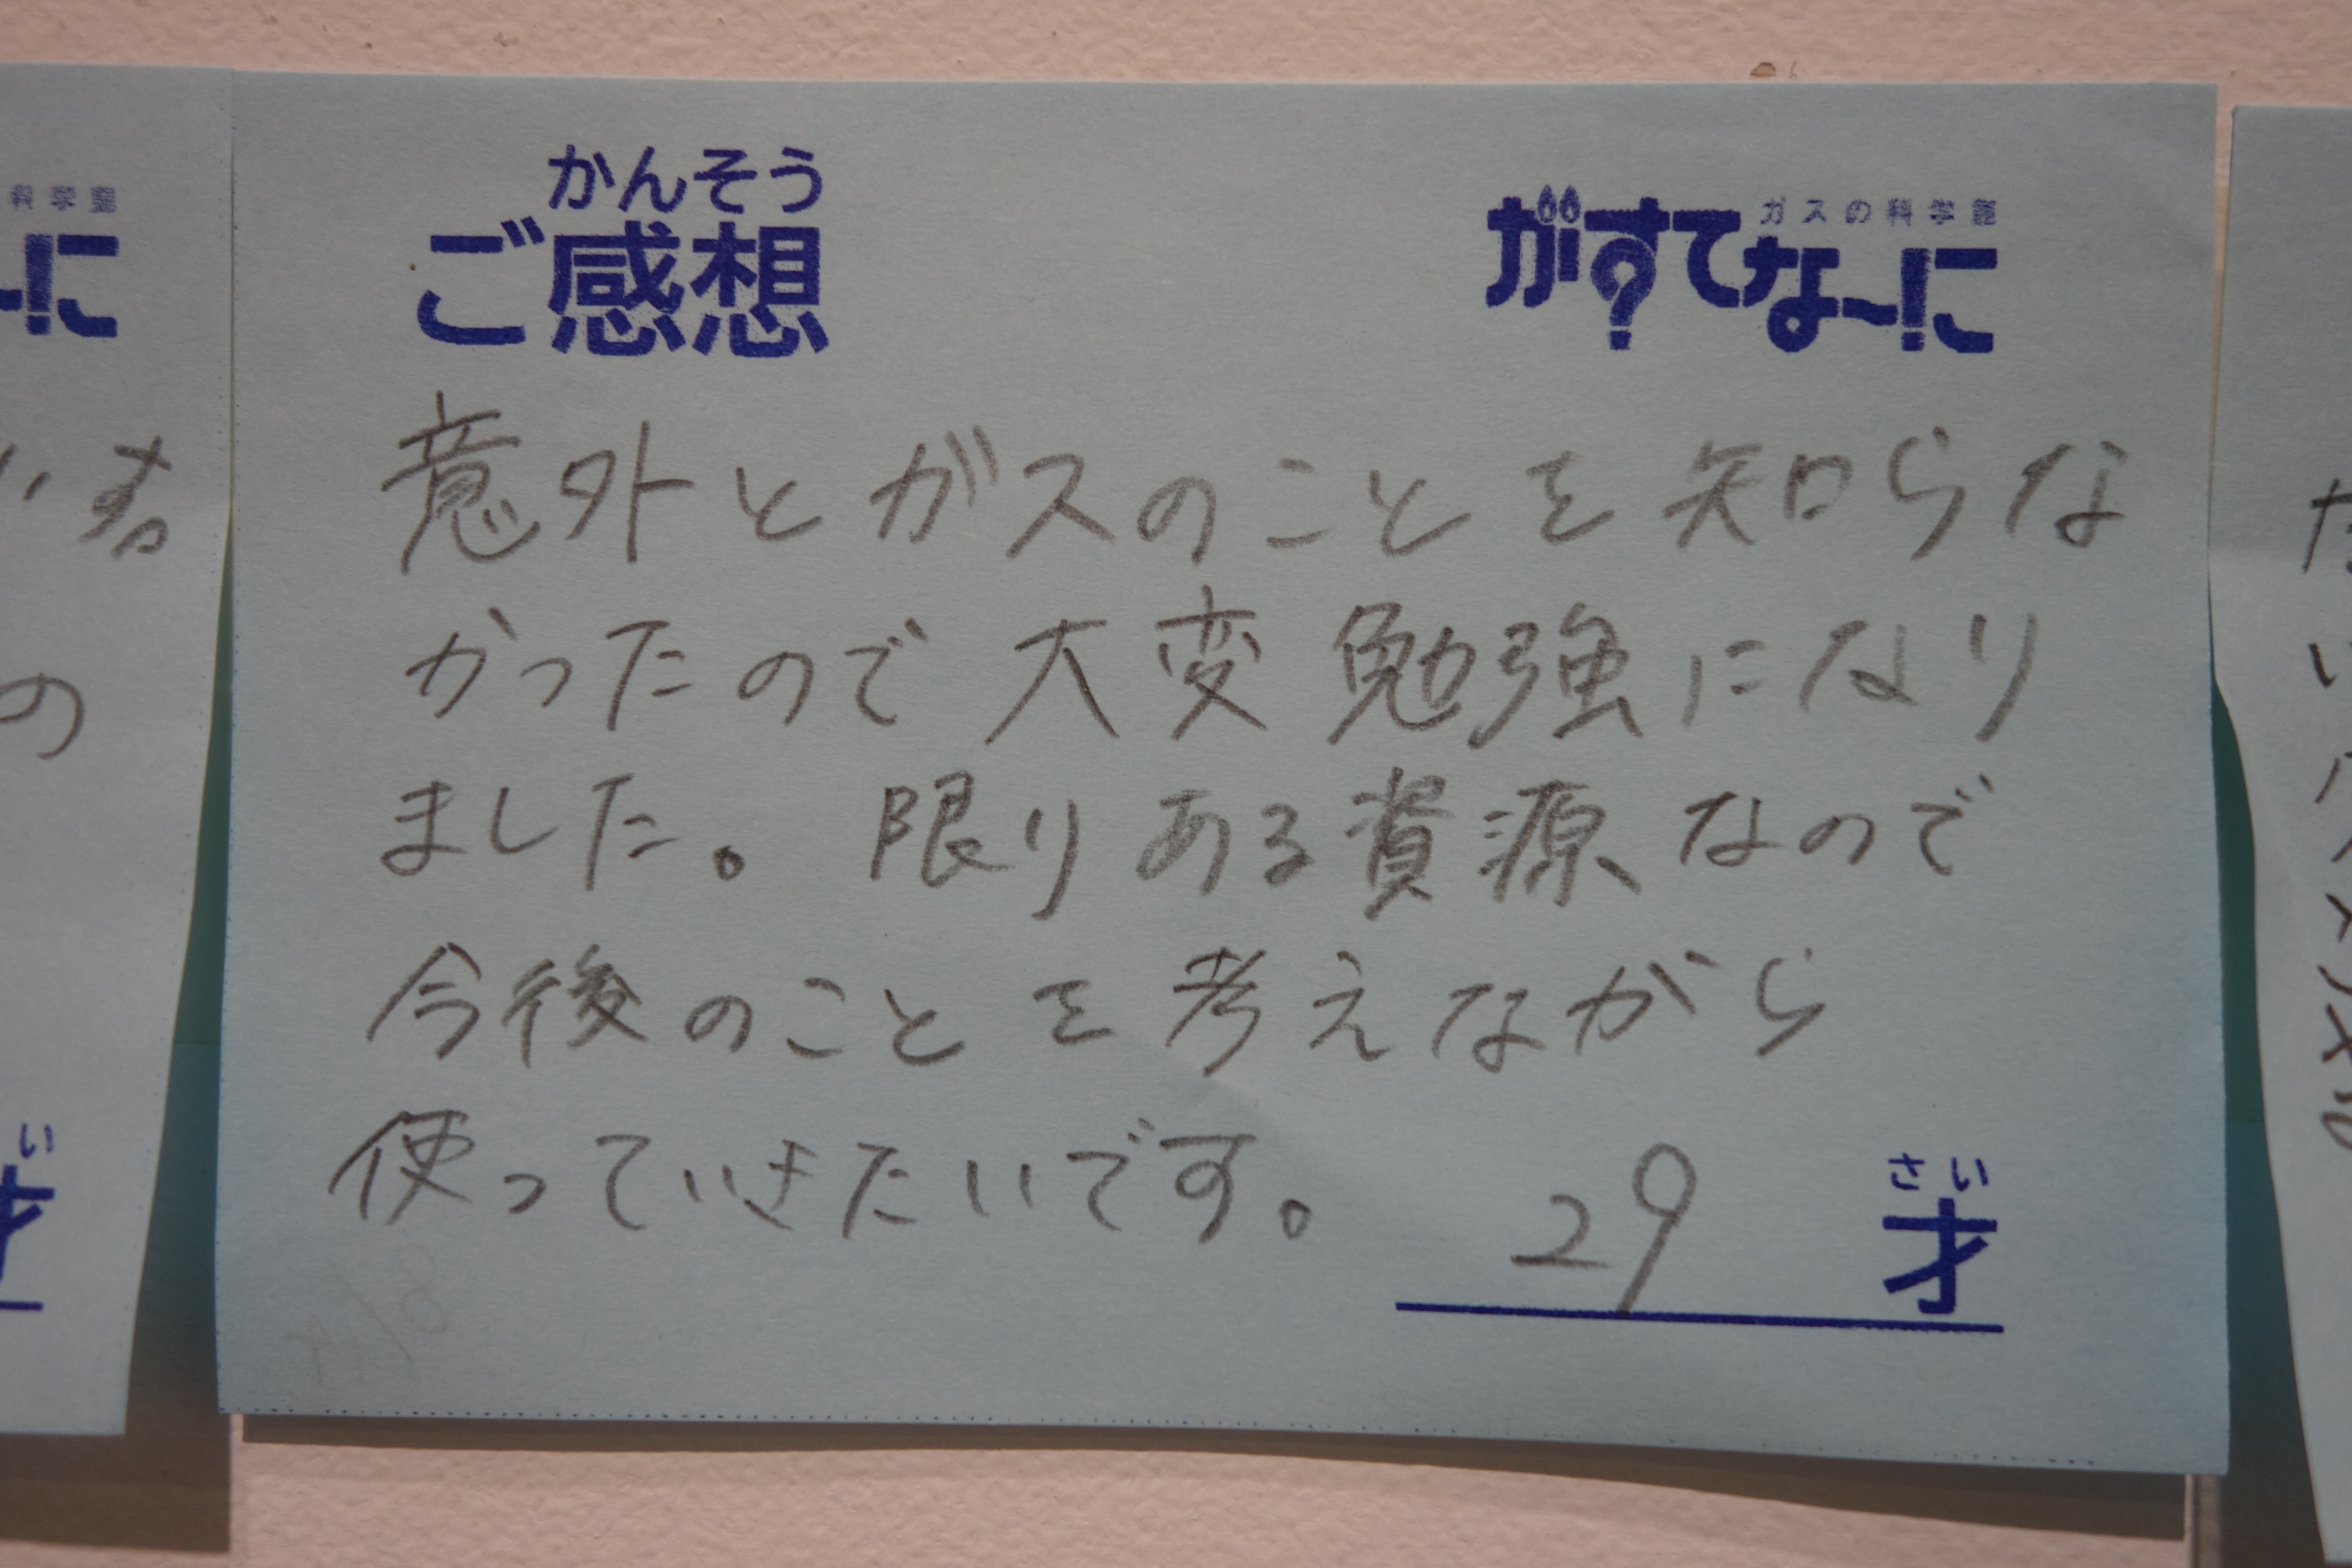 かんそう
ご感想
ガスの科学館
がすてなーに
意外とガスのことを知らな
かったので大変勉強になり
ました。限りある資源なので
今後のことを考えながら
使っていきたいです。
29
さい
才
科学館
に
の
い
才